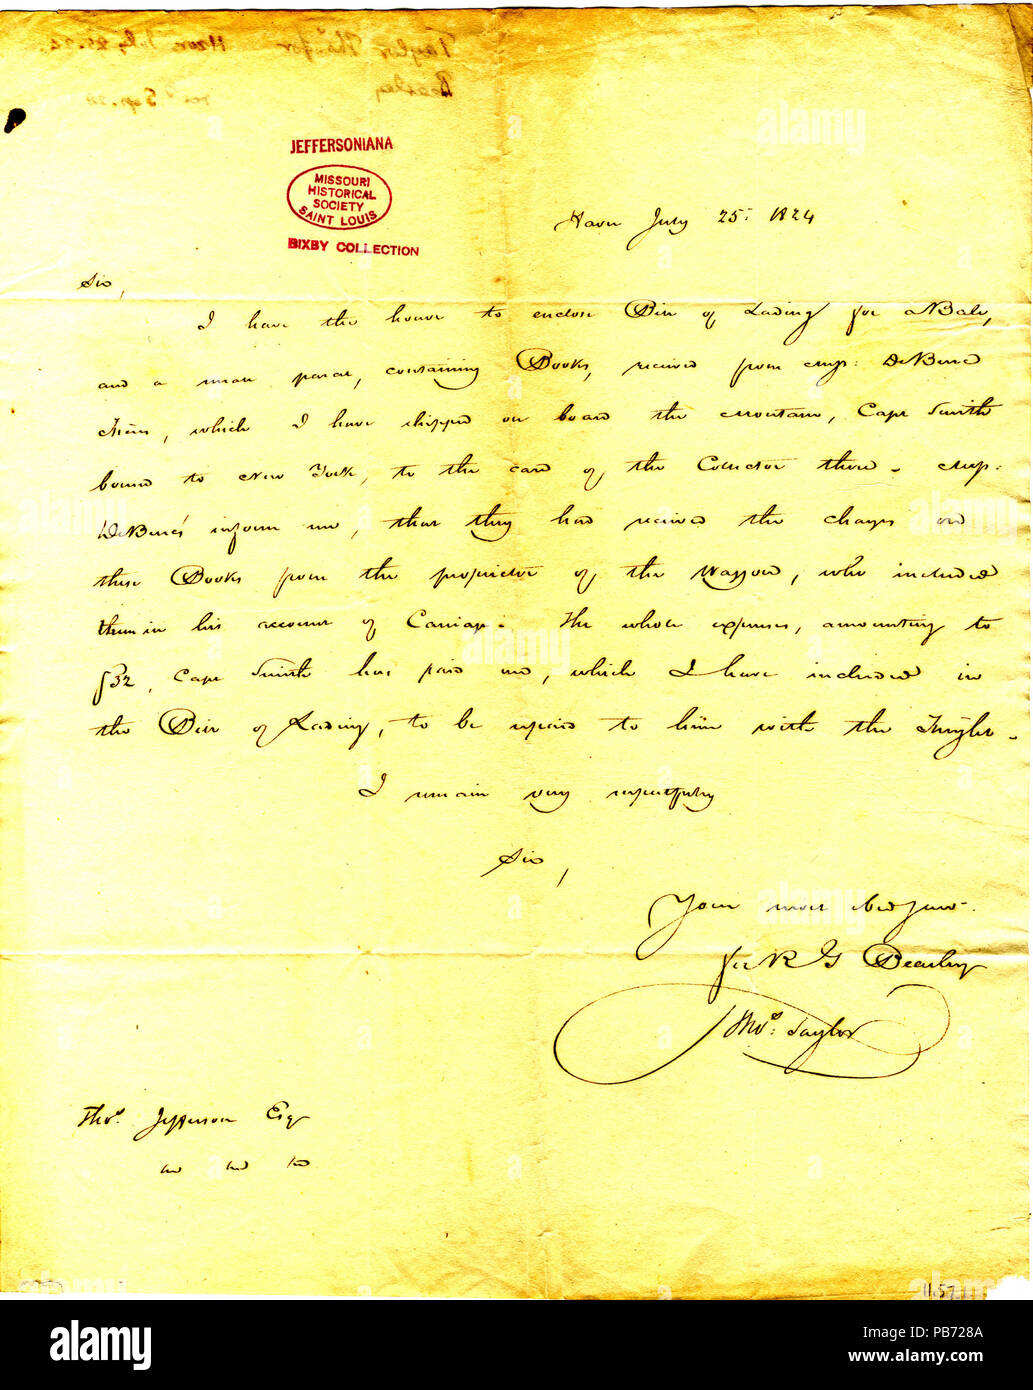 JEFFERSONIANA
MISSOURI
HISTORICAL
SOCIETY
SAINT LOUIS
BIXBY COLLECTION
Havre July 25: 1824
Sir,
I have the honor to enclose Bill of Lading for a Bale,
and a small parcel, containing Books, received from Mess: DeBure
Freres, which I have shipped on board the Mountain, Capt Smith
bound to New York, to the care of the Collector there. Mess:
DeBure's inform me, that they had received the charges on
these Books from the proprietor of the Waggon, who included
them in his account of Carriage. The whole expenses, amounting to
Capt Smith has paid me, which I have included in
the Bill of Lading, to be repaid to him with the freight.
I remain very respectfully
Sir,
Your most obed serv.
for R G Beasley
Thos: Taylor
Thos. Jefferson Esq
1157
alamy
Image ID: PB728A
www.alamy.com